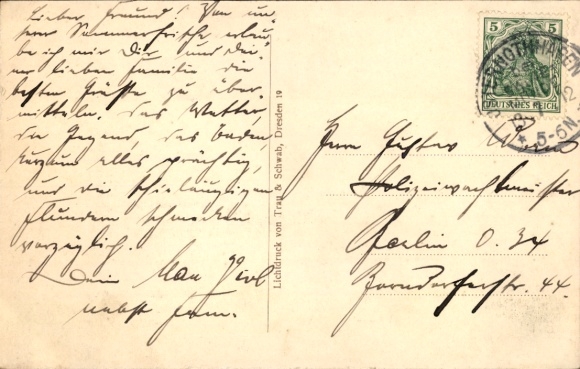 Lieber Freund! Von un-
serer Sommerfrische erlau-
be ich mir Dir und Dei-
ner lieben Familie die
besten Grüße zu über-
mitteln. Das Wetter,
die Gegend, das Baden
kurzum alles prächtig,
und die schieläugigen
Flundern schmecken
vorzüglich.
Dein Max
nebst Fam.
Lichtdruck von Trau & Schwab, Dresden 19
5 5
DEUTSCHES REICH
5-6N
Herrn Gustav
Polizeiwachtmeister
Berlin O. 34
Zorndorferstr. 44.